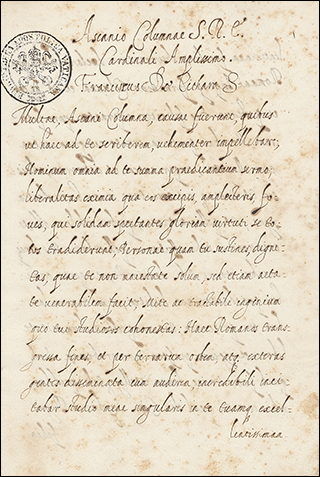 Ascanio Columnae S. R. E.
Cardinali Amplissimo.
Franciscus
Multae, Ascani Columna, causae fuerunt, quibus
ut haec ad te scriberem, uehementer impellebar;
Hominum omnia ad te summa praedicantium sermo;
liberalitas eximia qua eos excipis, amplecteris, fo-
ues, qui solidam spectantes gloriam uirtuti se to-
tos tradiderunt; Personae quam tu sustines, digni-
tas, quae te non maiestate solum, sed etiam aeta-
te uenerabilem facit; Mite ac tractabile ingenium
quo tui studiosos cohonestas: Haec Romanos trans-
gressa fines, et per terrarum orbem, atq. exteras
gentes disseminata cum audirem, incredibili inci-
tabar studio meae singularis in te tuamq. excel-
lentissimam